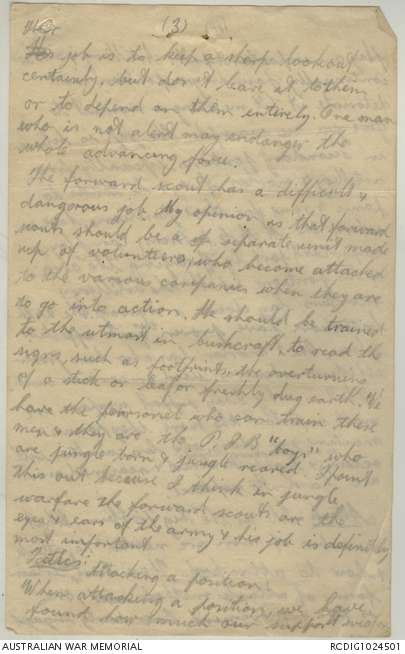 (3)
Their
job is to keep a sharp lookout
certainly, but don't leave it to them
or to depend on them entirely. One man
who is not alert may endanger the
whole advancing force.
The forward scout has a difficult &
dangerous job. My opinion is that forward
scouts should be a separate unit made
up of volunteers, who become attached
to the various companies when they are
to go into action. He should be trained
to the utmost in bushcraft, to read the
signs, such as footprints, the overturning
of a stick or leaf or freshly dug earth. We
have the personel who can train these
men & they are the P.I.B "boys" who
are jungle born & jungle reared. I point
this out because I think in jungle
warfare the forward scouts are the
eyes & ears of the army & his job is definitely
most important.
Attacking a position
When attacking a position, we have
found how much our support
AUSTRALIAN WAR MEMORIAL
RCDIG1024501